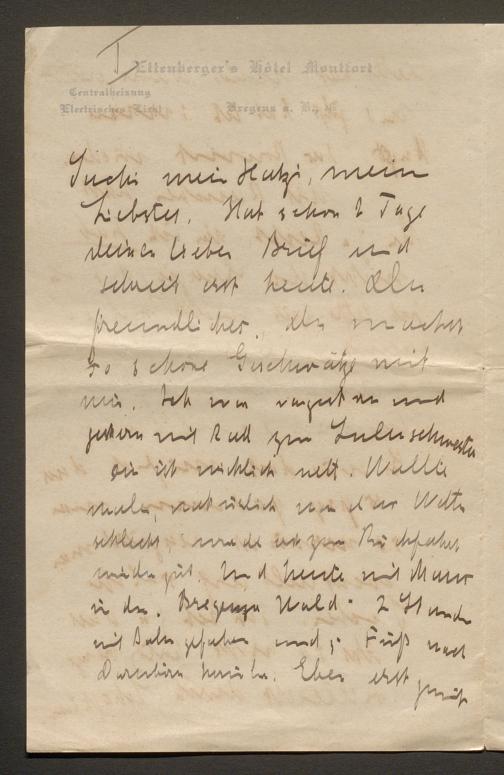 I
Ettenberger's Hôtel Montfort
Centralheizung
Electrisches Licht
Bregenz a. B.,
mein Hatzi, mein
Liebster. Hat schon 2 Tage
deinen lieben Brief und
schreit erst heute. Du
freundlicher, du machst
so schöne Geschwätze mit
mir. Ich war und
gestern mit Rudl zur
sie ist wirklich nett. Wollte
malen, natürlich war das Wetter
schlecht, wurde erst zur Rückfahrt
wieder gut. Und heute mit
in den Bregenzer Wald. 2 Stunden
mit Bahn gefahren und z. Fuß nach
Dornbirn herüber. Eben erst